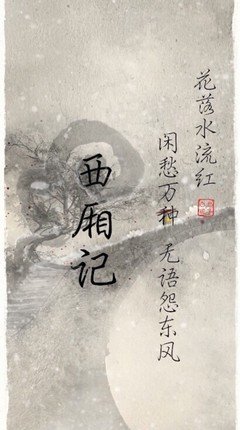 花落水流红
闲愁万种 无语怨东风
西厢记